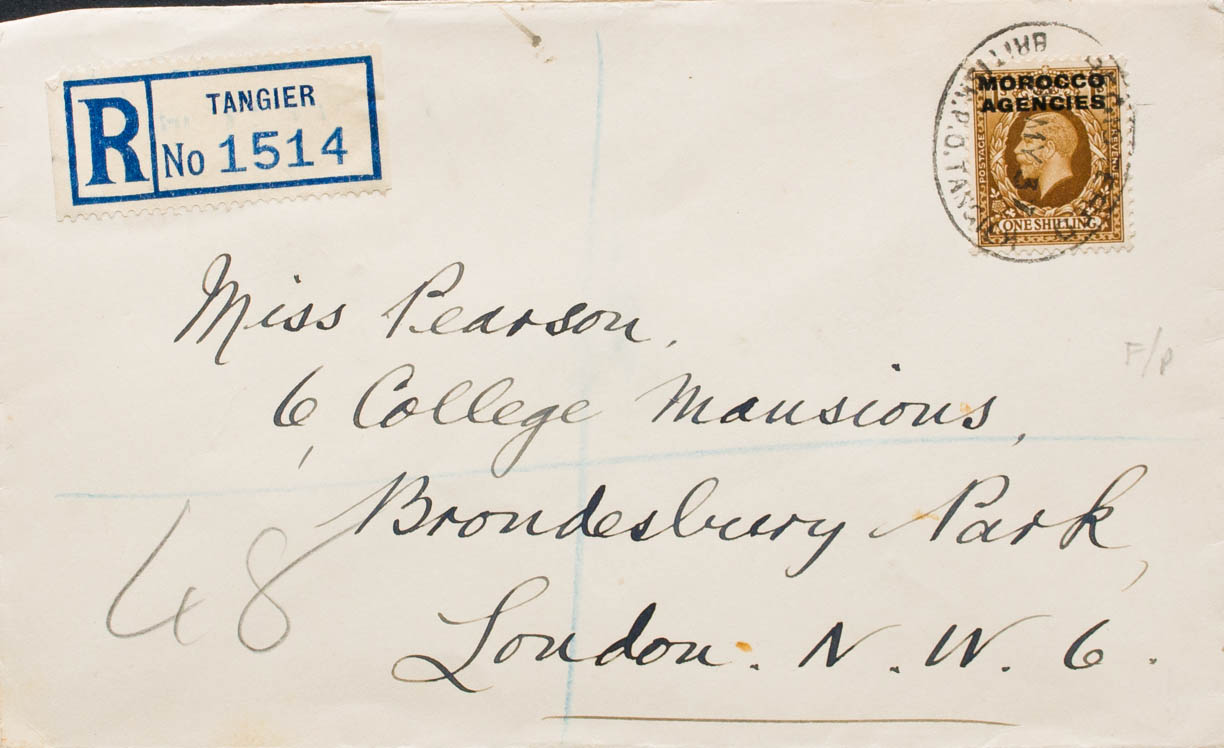 R
TANGIER
No 1514
BRITISH P.O. TANGIER
MOROCCO
AGENCIES
POSTAGE
REVENUE
ONE SHILLING
Miss Pearson,
6, College Mansions,
Brondesbury Park,
London. N. W. 6.
F/P
48